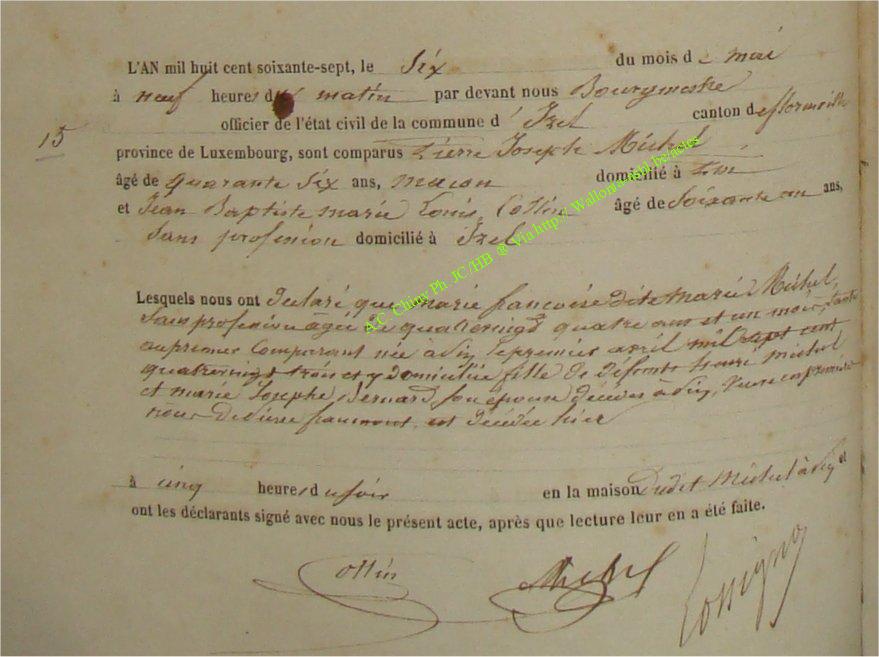 L'AN mil huit cent soixante-sept, le Six du mois de mai
à neuf heures du matin par devant nous Bourgmestre
15
officier de l'état civil de la commune d'Izel canton de florenville
province de Luxembourg, sont comparus Pierre Joseph Michel
âgé de quarante Six ans, macon domicilié à
et Jean Baptiste marie Louis Collin âgé de Soixante un ans,
Sans profession domicilié à Izel
Lesquels nous ont declaré que marie françoise dite marie Michel,
Sans profession agée de quatrevingt quatre ans et un mois, tante
au premier Comparant née à le premier avril mil sept cent
quatrevingt trois et y domiciliée fille de défunts henri michel
et marie Josephe Bernard, Son épouse décédés à Veuve en premiere
noce de est décédée hier
à cinq heures du soir en la maison dudit Michel à et
ont les déclarants signé avec nous le présent acte, après que lecture leur en a été faite.
Collin Michel Rossignon
A.C. Chiny Ph. JC/HB @ Via http://